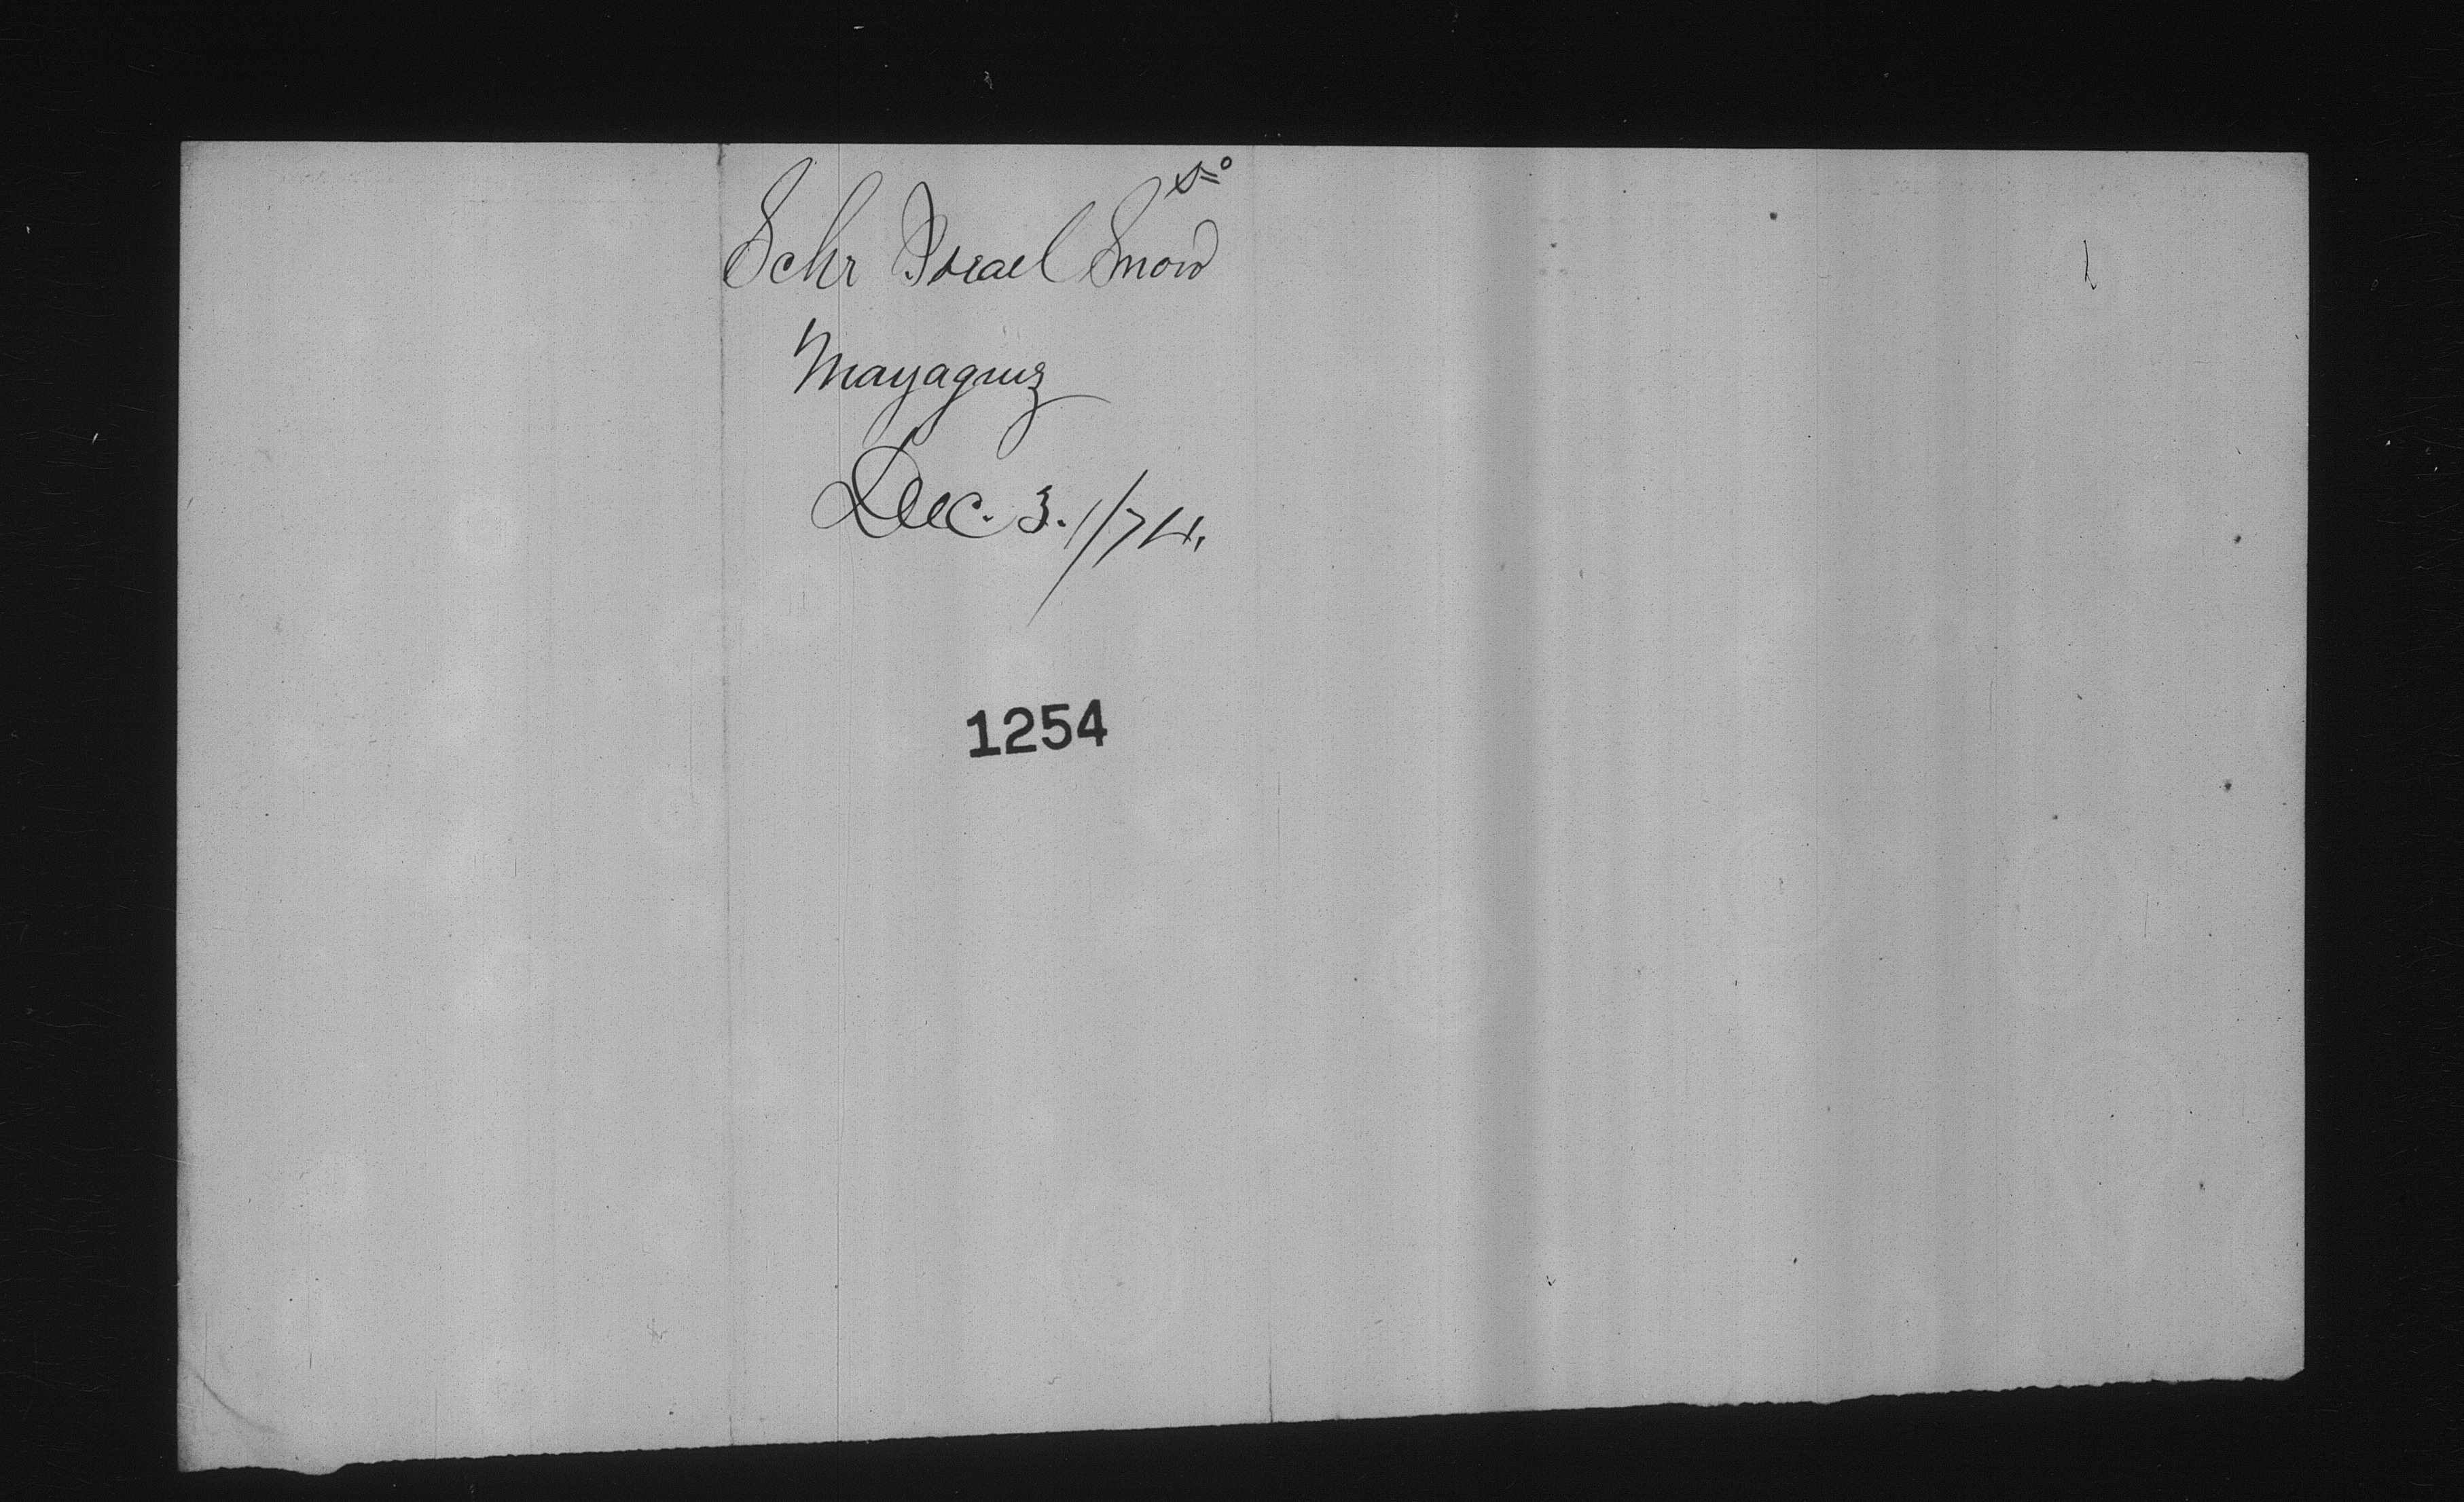 Schr Israel Snow
Mayaguez
Dec. 3. /74.
1254